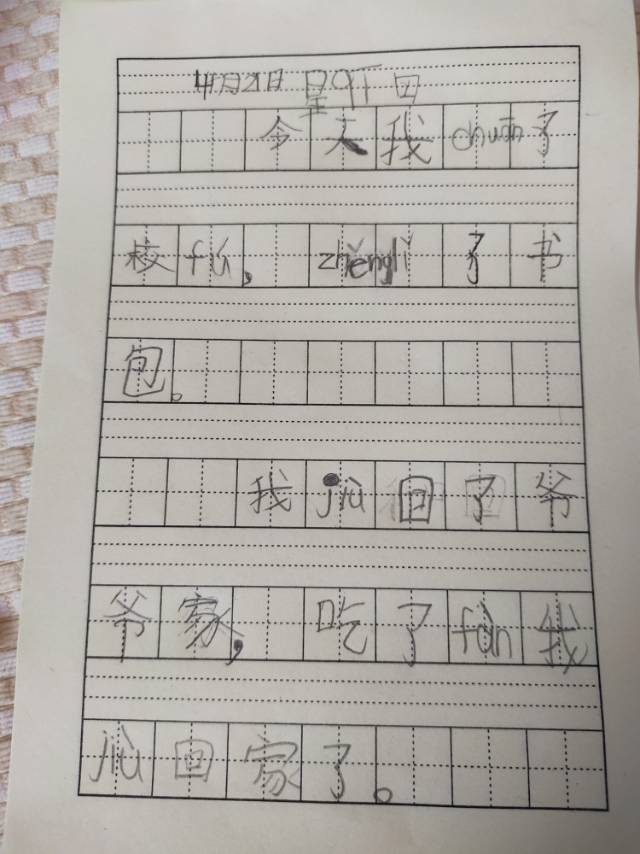 4月21日 星qī 四
今天我chuān了
校fú，zhěnglǐ了书
包。
我jiù回了爷
爷家，吃了fàn我
jiù回家了。